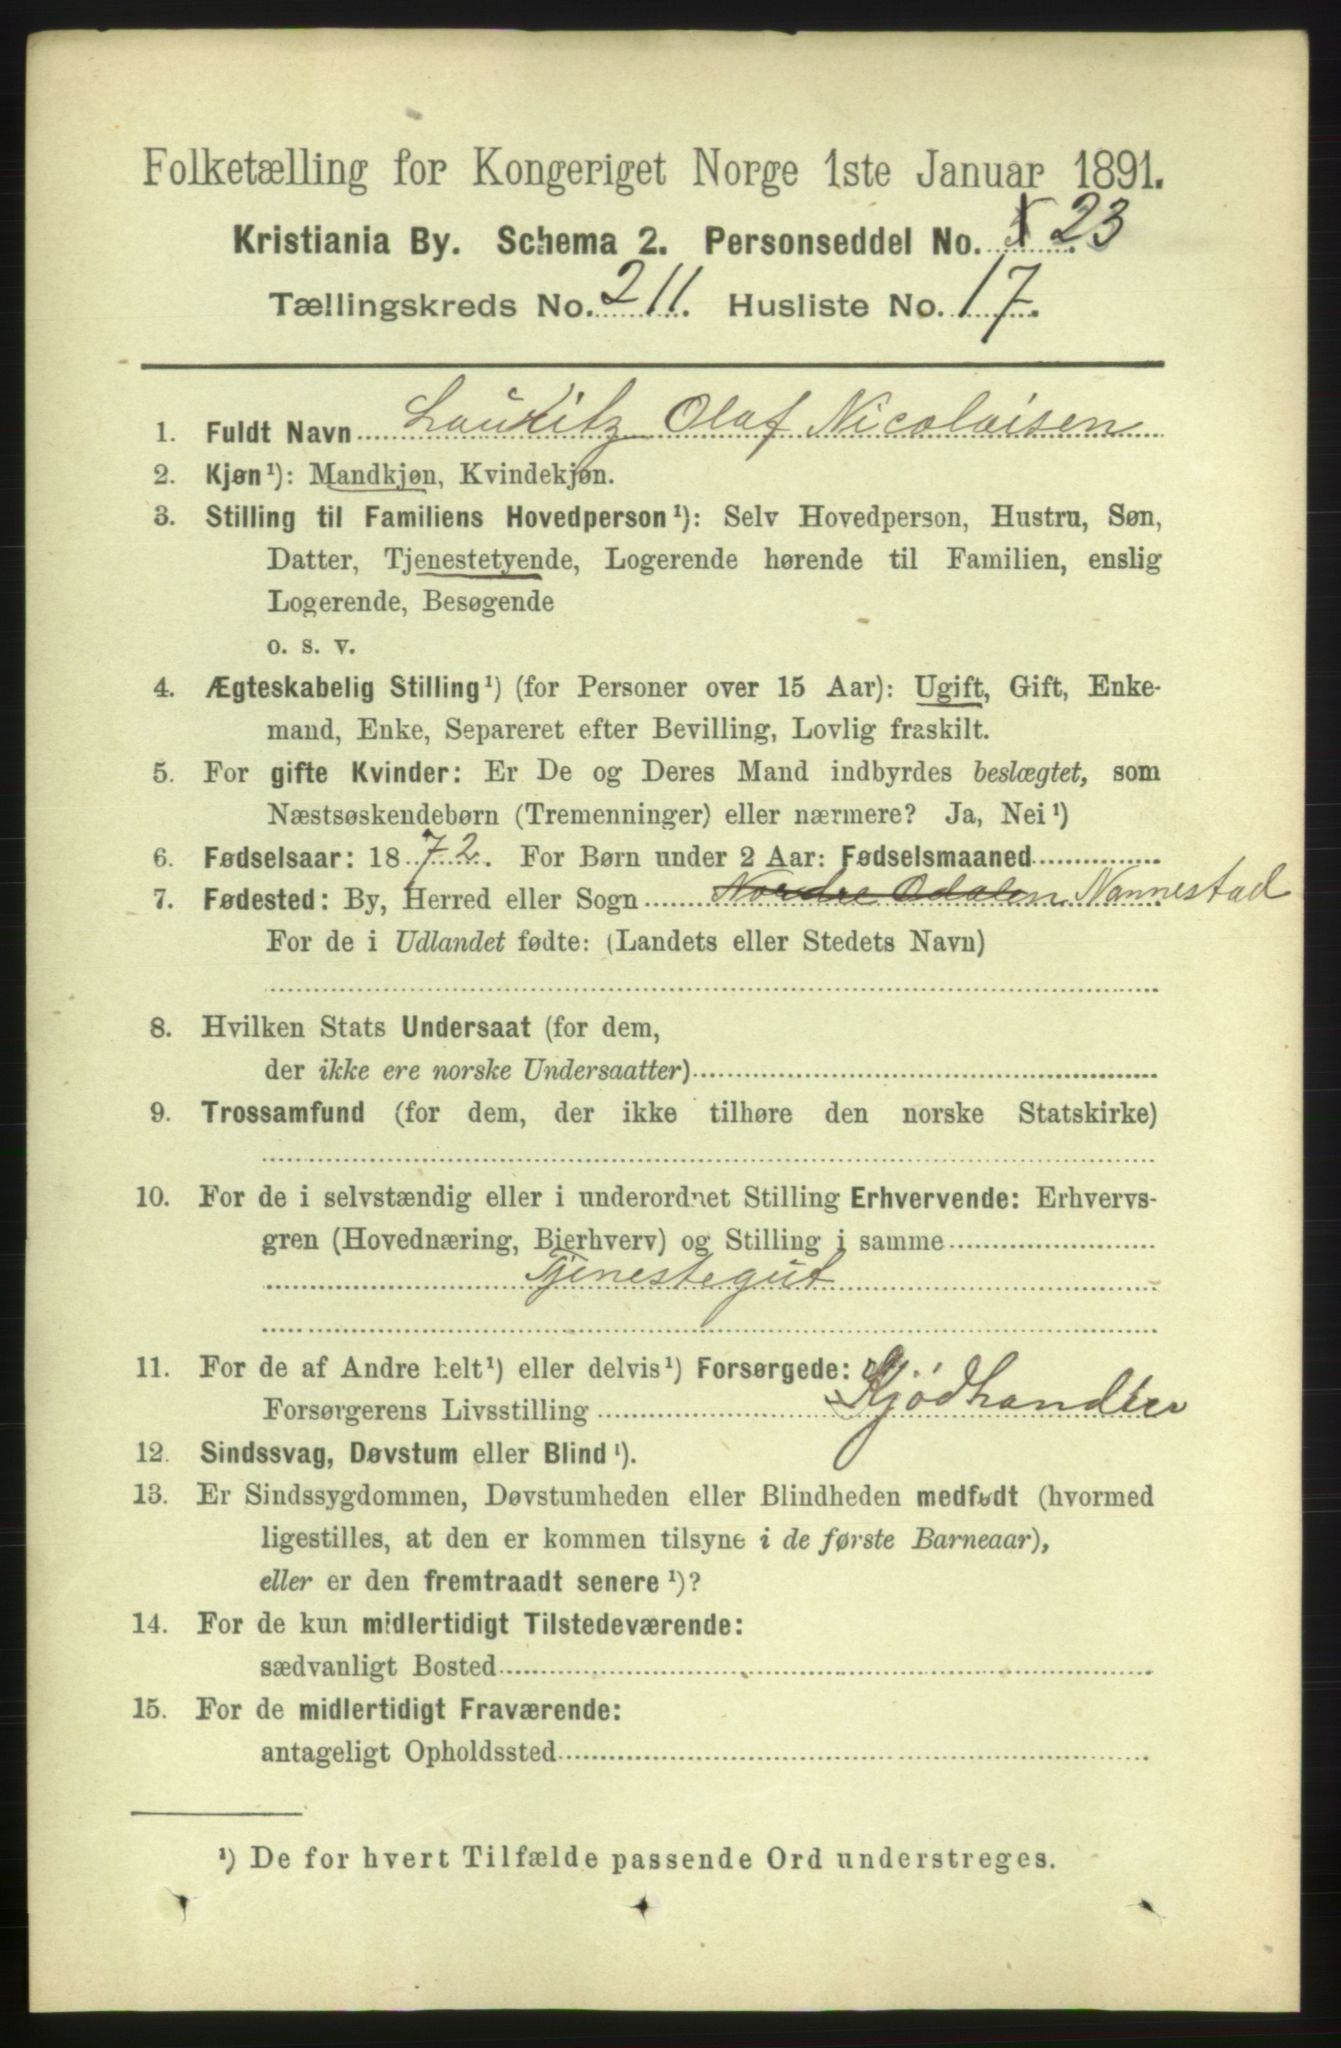 Folketælling for Kongeriget Norge 1ste Januar 1891.
Kristiania By. Schema 2. Personseddel No. 23
Tællingskreds No. 211. Husliste No. 17.
1. Fuldt Navn Lauritz Olaf Nicolaisen
2. Kjøn¹): Mandkjøn, Kvindekjøn.
3. Stilling til Familiens Hovedperson¹): Selv Hovedperson, Hustru, Søn,
Datter, Tjenestetyende, Logerende hørende til Familien, enslig
Logerende, Besøgende
o. s. v.
4. Ægteskabelig Stilling¹) (for Personer over 15 Aar): Ugift, Gift, Enke-
mand, Enke, Separeret efter Bevilling, Lovlig fraskilt.
5. For gifte Kvinder: Er De og Deres Mand indbyrdes beslægtet, som
Næstsøskendebørn (Tremenninger) eller nærmere? Ja, Nei¹)
6. Fødselsaar: 1872. For Børn under 2 Aar: Fødselsmaaned
7. Fødested: By, Herred eller Sogn Nordre Odalen Nannestad
For de i Udlandet fødte: (Landets eller Stedets Navn)
8. Hvilken Stats Undersaat (for dem,
der ikke ere norske Undersaatter)
9. Trossamfund (for dem, der ikke tilhøre den norske Statskirke)
10. For de i selvstændig eller i underordnet Stilling Erhvervende: Erhvervs-
gren (Hovednæring, Bierhverv) og Stilling i samme
Tjenestegut
11. For de af Andre helt¹) eller delvis¹) Forsørgede:
Forsørgerens Livsstilling Kjødhandler
12. Sindssvag, Døvstum eller Blind¹).
13. Er Sindssygdommen, Døvstumheden eller Blindheden medfødt (hvormed
ligestilles, at den er kommen tilsyne i de første Barneaar),
eller er den fremtraadt senere¹)?
14. For de kun midlertidigt Tilstedeværende:
sædvanligt Bosted
15. For de midlertidigt Fraværende:
antageligt Opholdssted
¹) De for hvert Tilfælde passende Ord understreges.